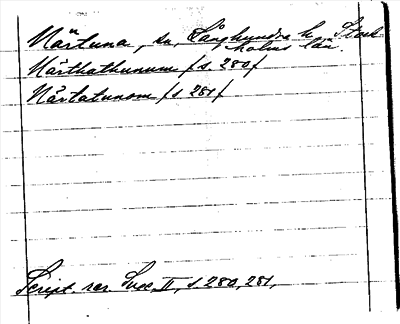 Närtuna, sn, Långhundra h. Stock
holms län.
Närthathunum /s. 280/
Närtatunom /s 281/
Script. rer. Svec. II, s 280, 281.